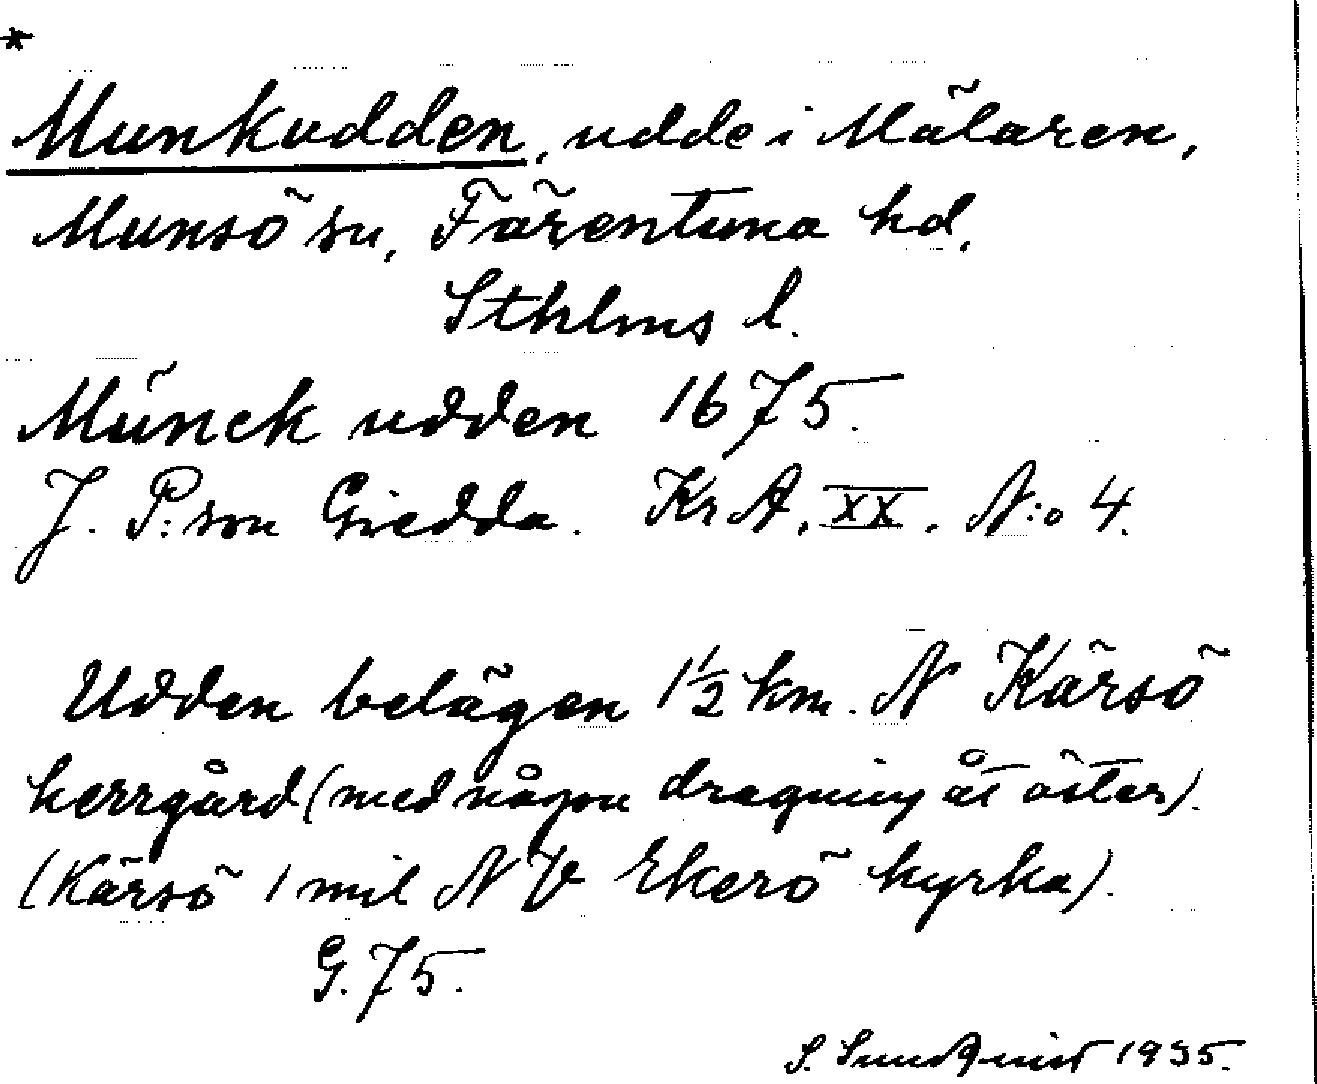 *
Munkudden, udde i Mälaren,
Munsö sn, Färentuna hd,
Sthlms l.
Münck udden 1675.
J. P:son Giedda. Kr A, XX. N:o 4.
Udden belägen 1½ km. N Kärsö
herrgård (med någon dragning åt öster).
(Kärsö 1 mil NV Ekerö kyrka).
G. 75.
S. Sundquist 1935.